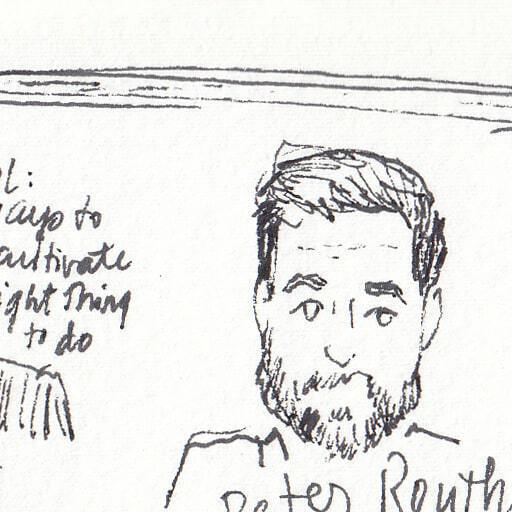 l:
ways to
cultivate
ight Thing
to do
Peter Routh